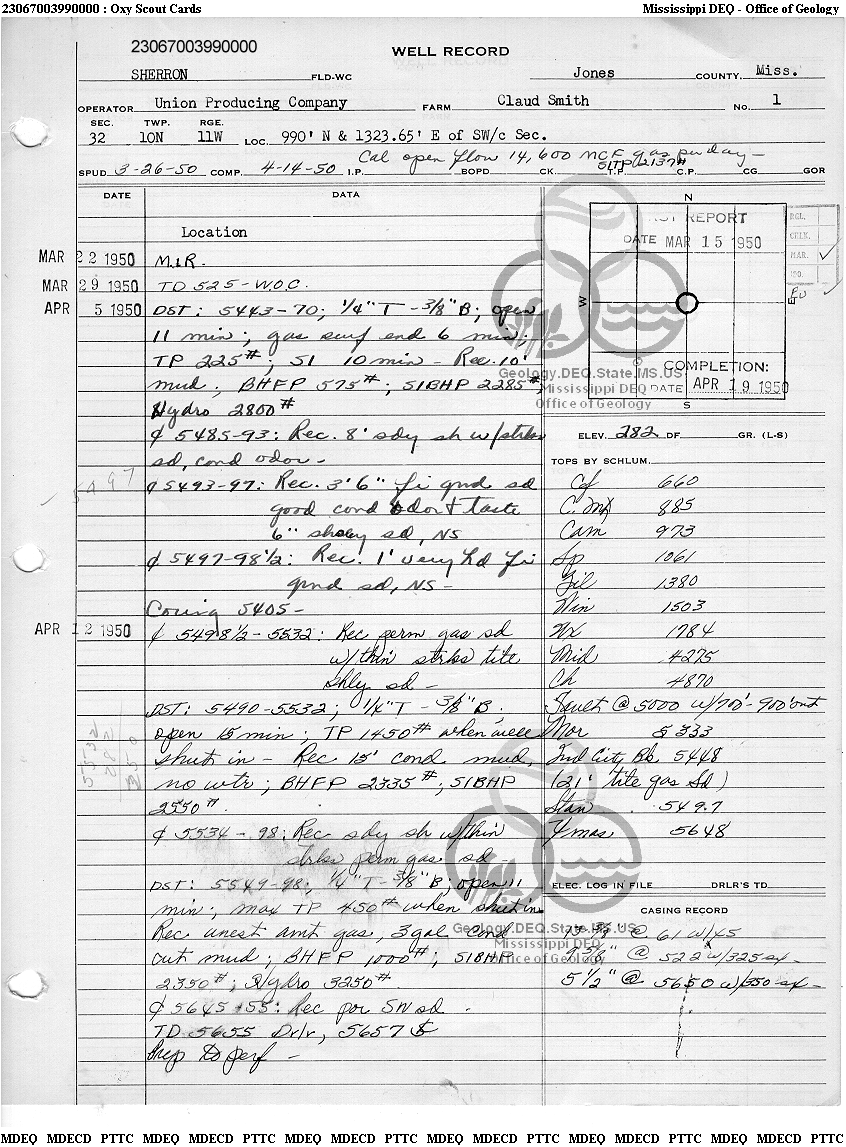 23067003990000 : Oxy Scout Cards
Mississippi DEQ - Office of Geology
23067003990000
WELL RECORD
SHERRON FLD-WC Jones COUNTY, Miss.
OPERATOR Union Producing Company FARM Claud Smith No. 1
SEC. TWP. RGE.
32 10N 11W LOC. 990' N & 1323.65' E of SW/c Sec.
Cal open flow 14,600 MCF gas per day -
SITP 2137#
SPUD 3-26-50 COMP. 4-14-50 I.P. BOPD CK. T.P. C.P. CG GOR
DATE DATA
Location
MAR 22 1950 M.I.R.
MAR 29 1950 TD 525 - W.O.C.
APR 5 1950 DST: 5443-70; 1/4" T - 3/8" B; open
11 min; gas surf end 6 min;
TP 225#; SI 10 min - Rec. 10'
mud; BHFP 575#; SIBHP 2285#;
Hydro 2800#
¢ 5485-93: Rec. 8' sdy sh w/strks
sd, cond odor -
5497
¢ 5493-97: Rec. 3' 6" fi grnd sd
good cond odor & taste
6" shaley sd, NS
¢ 5497-98 1/2: Rec. 1' very hd fi
grnd sd, NS -
Coring 5405 -
APR 12 1950 ¢ 5498 1/2 - 5532: Rec perm gas sd
w/thin strks tite
shly sd -
DST: 5490-5532; 1/4" T - 3/8" B;
open 15 min; TP 1450# when well
shut in - Rec 15' cond mud,
no wtr; BHFP 2335#; SIBHP
2350#.
5532
282
¢ 5534 - 98: Rec sdy sh w/thin
strks perm gas sd
DST: 5549-98; 1/4" T - 3/8" B; open 11
min; max TP 450# when shut in
Rec unest amt gas, 3 gal cond
cut mud; BHFP 1000#; SIBHP
2350#; Hydro 3250#
¢ 5645-55: Rec por SW sd
TD 5655 Drlr, 5657 S
Prep to perf -
N
W
E
S
REPORT
DATE MAR 15 1950
COMPLETION:
DATE APR 19 1950
RGL.
CELK.
MAR. ✓
Geology.DEQ.State.MS.US
Mississippi DEQ
Office of Geology
ELEV. 282 DF GR. (L-S)
TOPS BY SCHLUM.
Cf 660
C. Mx 885
Cam 973
Sp 1061
Zil 1380
Win 1503
Wx 1784
Mid 4275
Ch 4870
Fault @ 5000 w/700'-900' out
Mor 5333
Ind City Bb 5448
(21' tite gas sd)
Stan 5497
Xmas 5648
ELEC. LOG IN FILE DRLR'S TD
CASING RECORD
13 3/8 @ 61 w/45
9 5/8" @ 522 w/325 sx -
5 1/2" @ 5650 w/350 sx -
Geology.DEQ.State.MS.US
Mississippi DEQ
Office of Geology
MDEQ MDECD PTTC MDEQ MDECD PTTC MDEQ MDECD PTTC MDEQ MDECD PTTC MDEQ MDECD PTTC MDEQ MDECD PTTC